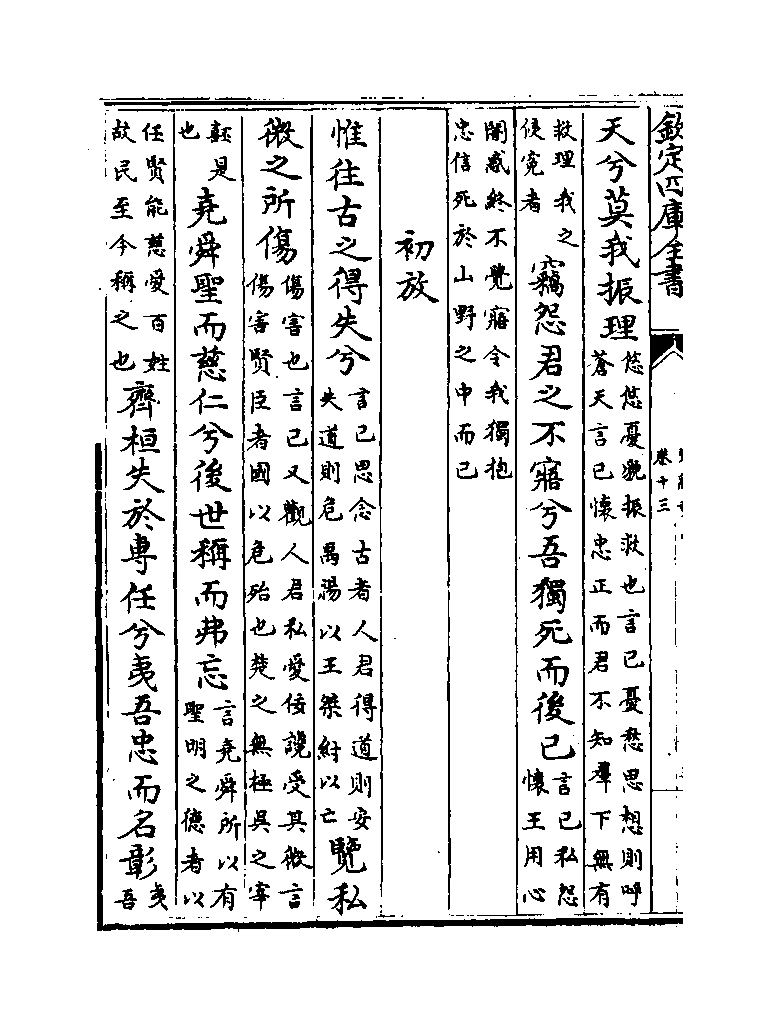 欽定四庫全書
卷十三
天兮莫我振理悠悠憂貌振救也言已憂愁思想則呼蒼天言已懷忠正而君不知羣下無有
救理我之侵寃者竊怨君之不寤兮吾獨死而後已言已私怨懷王用心
闇惑終不覺寤令我獨抱忠信死於山野之中而已
初放
惟往古之得失兮言已思念古者人君得道則安失道則危禹湯以王桀紂以亡覽私
微之所傷傷害也言已又觀人君私愛佞讒受其微言傷害賢臣者國以危殆也楚之無極吳之宰
嚭是也堯舜聖而慈仁兮後世稱而弗忘言堯舜所以有聖明之德者以
任賢能慈愛百姓故民至今稱之也齊桓失於専任兮夷吾忠而名彰夷吾